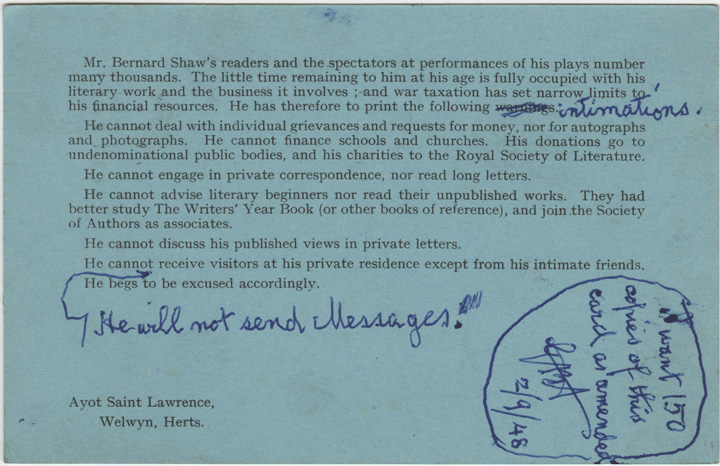 Mr. Bernard Shaw's readers and the spectators at performances of his plays number
many thousands. The little time remaining to him at his age is fully occupied with his
literary work and the business it involves ; and war taxation has set narrow limits to
his financial resources. He has therefore to print the following warnings: intimations.
He cannot deal with individual grievances and requests for money, nor for autographs
and photographs. He cannot finance schools and churches. His donations go to
undenominational public bodies, and his charities to the Royal Society of Literature.
He cannot engage in private correspondence, nor read long letters.
He cannot advise literary beginners nor read their unpublished works. They had
better study The Writers' Year Book (or other books of reference), and join the Society
of Authors as associates.
He cannot discuss his published views in private letters.
He cannot receive visitors at his private residence except from his intimate friends.
He begs to be excused accordingly.
He will not send Messages.
I want 150
copies of this
card as amended
2/9/48
Ayot Saint Lawrence,
Welwyn, Herts.